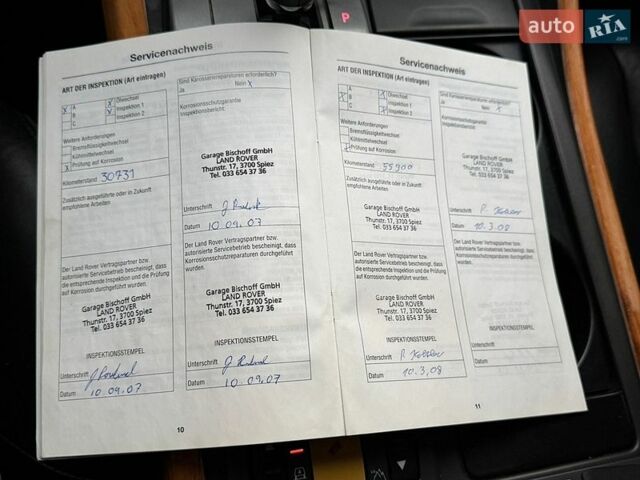 P
auto RIA
.com
Servicenachweis
ART DER INSPEKTION (Art eintragen)
x A x Ölwechsel
B x Inspektion 1
C Inspektion 2
Weitere Anforderungen
Bremsflüssigkeitwechsel
Kühlmittelwechsel
x Prüfung auf Korrosion
Kilometerstand 30731
Zusätzlich ausgeführte oder in Zukunft
empfohlene Arbeiten
Der Land Rover Vertragspartner bzw.
autorisierte Servicebetrieb bescheinigt, dass
die entsprechende Inspektion und die Prüfung
auf Korrosion durchgeführt wurden.
Garage Bischoff GmbH
LAND ROVER
Thunstr. 17, 3700 Spiez
Tel. 033 654 37 36
INSPEKTIONSSTEMPEL
Unterschrift
Datum 10.09.07
Sind Karosseriereparaturen erforderlich?
Ja Nein x
Korrosionsschutzgarantie
Inspektionsbericht:
Garage Bischoff GmbH
LAND ROVER
Thunstr. 17, 3700 Spiez
Tel. 033 654 37 36
Unterschrift
Datum 10.09.07
Der Land Rover Vertragspartner bzw.
autorisierte Servicebetrieb bescheinigt, dass
Korrosionsschutzreparaturen durchgeführt
wurden.
Garage Bischoff GmbH
LAND ROVER
Thunstr. 17, 3700 Spiez
Tel. 033 654 37 36
INSPEKTIONSSTEMPEL
Unterschrift
Datum 10.09.07
10
Servicenachweis
ART DER INSPEKTION (Art eintragen)
x A x Ölwechsel
B x Inspektion 1
C Inspektion 2
Weitere Anforderungen
Bremsflüssigkeitwechsel
Kühlmittelwechsel
Prüfung auf Korrosion
Kilometerstand 55900
Zusätzlich ausgeführte oder in Zukunft
empfohlene Arbeiten
Garage Bischoff GmbH
LAND ROVER
Thunstr. 17, 3700 Spiez
Tel. 033 654 37 36
Der Land Rover Vertragspartner bzw.
autorisierte Servicebetrieb bescheinigt, dass
die entsprechende Inspektion und die Prüfung
auf Korrosion durchgeführt wurden.
Garage Bischoff GmbH
LAND ROVER
Thunstr. 17, 3700 Spiez
Tel. 033 654 37 36
INSPEKTIONSSTEMPEL
Unterschrift
Datum 10.3.08
Sind Karosseriereparaturen erforderlich?
Ja Nein x
Korrosionsschutzgarantie
Inspektionsbericht:
Garage Bischoff GmbH
LAND ROVER
Thunstr. 17, 3700 Spiez
Tel. 033 654 37 36
Unterschrift
Datum 10.3.08
Der Land Rover Vertragspartner bzw.
autorisierte Servicebetrieb bescheinigt, dass
Korrosionsschutzreparaturen durchgeführt
wurden.
INSPEKTIONSSTEMPEL
Unterschrift
Datum
11